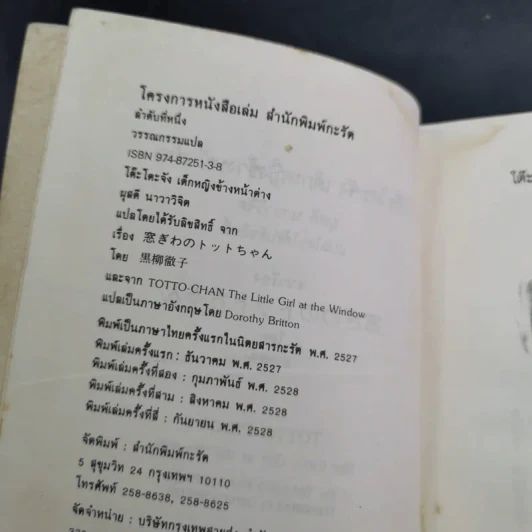 โครงการหนังสือเล่ม สำนักพิมพ์กะรัต
ลำดับที่หนึ่ง
วรรณกรรมแปล
ISBN 974-87251-3-8
โต๊ะโตะจัง เด็กหญิงข้างหน้าต่าง
ผุสดี นาวาวิจิต
แปลโดยได้รับลิขสิทธิ์ จาก
เรื่อง 窓ぎわのトットちゃん
โดย 黒柳徹子
และจาก TOTTO-CHAN The Little Girl at the Window
แปลเป็นภาษาอังกฤษโดย Dorothy Britton
พิมพ์เป็นภาษาไทยครั้งแรกในนิตยสารกะรัต พ.ศ. 2527
พิมพ์เล่มครั้งแรก : ธันวาคม พ.ศ. 2527
พิมพ์เล่มครั้งที่สอง : กุมภาพันธ์ พ.ศ. 2528
พิมพ์เล่มครั้งที่สาม : สิงหาคม พ.ศ. 2528
พิมพ์เล่มครั้งที่สี่ : กันยายน พ.ศ. 2528
จัดพิมพ์ : สำนักพิมพ์กะรัต
5 สุขุมวิท 24 กรุงเทพฯ 10110
โทรศัพท์ 258-8638, 258-8625
จัดจำหน่าย : บริษัทกรุงเทพสาย
โต๊ะ